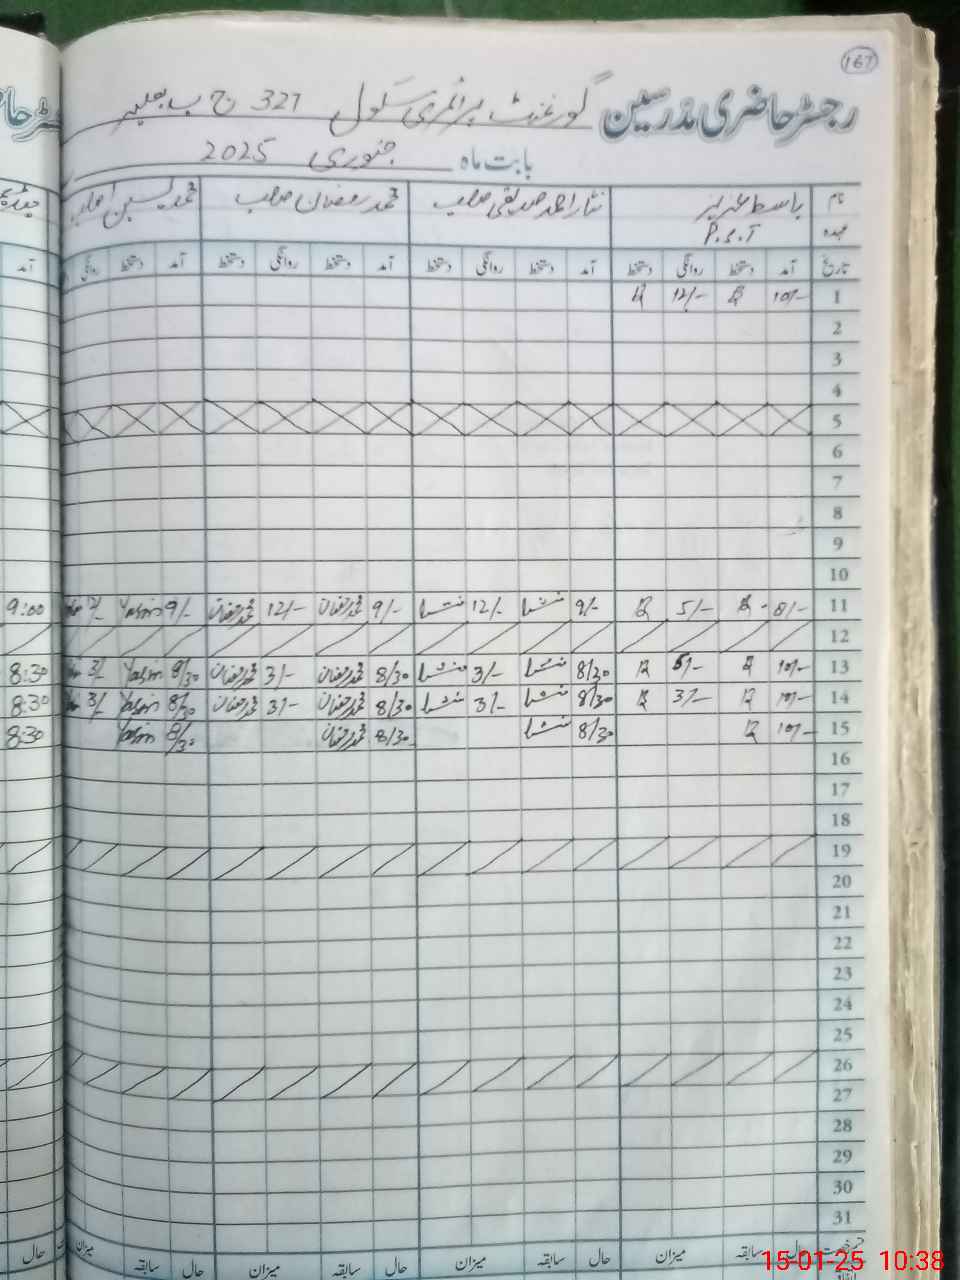 167
رجسٹر حاضری مدرسین گورنمنٹ پرائمری سکول 327 ج ب
بابت ماہ جنوری 2025
نام باسط عزیز نثار احمد صدیقی صاحب محمد رمضان صاحب محمد یٰسین صاحب
عہدہ P.S.T
تاریخ آمد دستخط روانگی دستخط آمد دستخط روانگی دستخط آمد دستخط روانگی دستخط آمد دستخط روانگی آمد
1 10/- 12/-
2
3
4
5
6
7
8
9
10
11 8/- 5/- 9/- 12/- 9/- محمد رمضان 12/- محمد رمضان 9/- Yasin 12/- 9:00
12
13 10/- 5/- 8/30 3/- 8/30 محمد رمضان 3/- محمد رمضان 8/30 Yasin 3/- 8:30
14 10/- 3/- 8/30 3/- 8/30 محمد رمضان 3/- محمد رمضان 8/30 Yasin 3/- 8:30
15 10/- 8/30 8/30 محمد رمضان 8/30 Yasin 8:30
16
17
18
19
20
21
22
23
24
25
26
27
28
29
30
31
حال سابقہ میزان حال سابقہ میزان حال سابقہ میزان حال سابقہ میزان حال
15-01-25 10:38